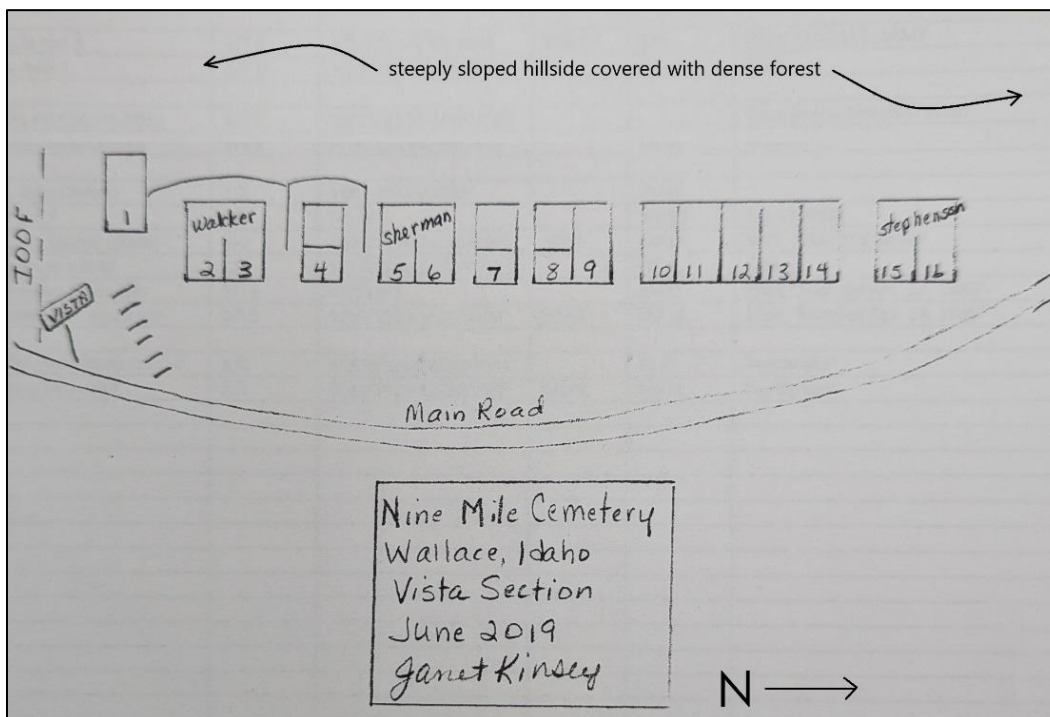 steeply sloped hillside covered with dense forest
IOOF
VISTA
1
Wakker
2 3
4
Sherman
5 6
7
8 9
10 11 12 13 14
Stephenson
15 16
Main Road
Nine Mile Cemetery
Wallace, Idaho
Vista Section
June 2019
Janet Kinsey
N